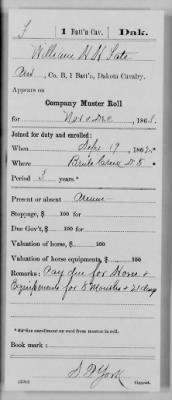 1 Batt'n Cav. Dak.
William H H
, Co. B, 1 Batt'n, Dakota Cavalry.
Appears on
Company Muster Roll
for Nov & Dec, 1863.
Joined for duty and enrolled:
When 19, 1862.
Where Brule Creek D.T.
Period 3 years.*
Present or absent
Stoppage, $ 100 for
Due Gov't, $ 100 for
Valuation of horse, $ 100
Valuation of horse equipments, $ 100
Remarks: Pay due for Horse &
Equipments for 8 Months & 21 days
*See enrollment on card from muster-in roll.
Book mark:
S D York
Copyist.